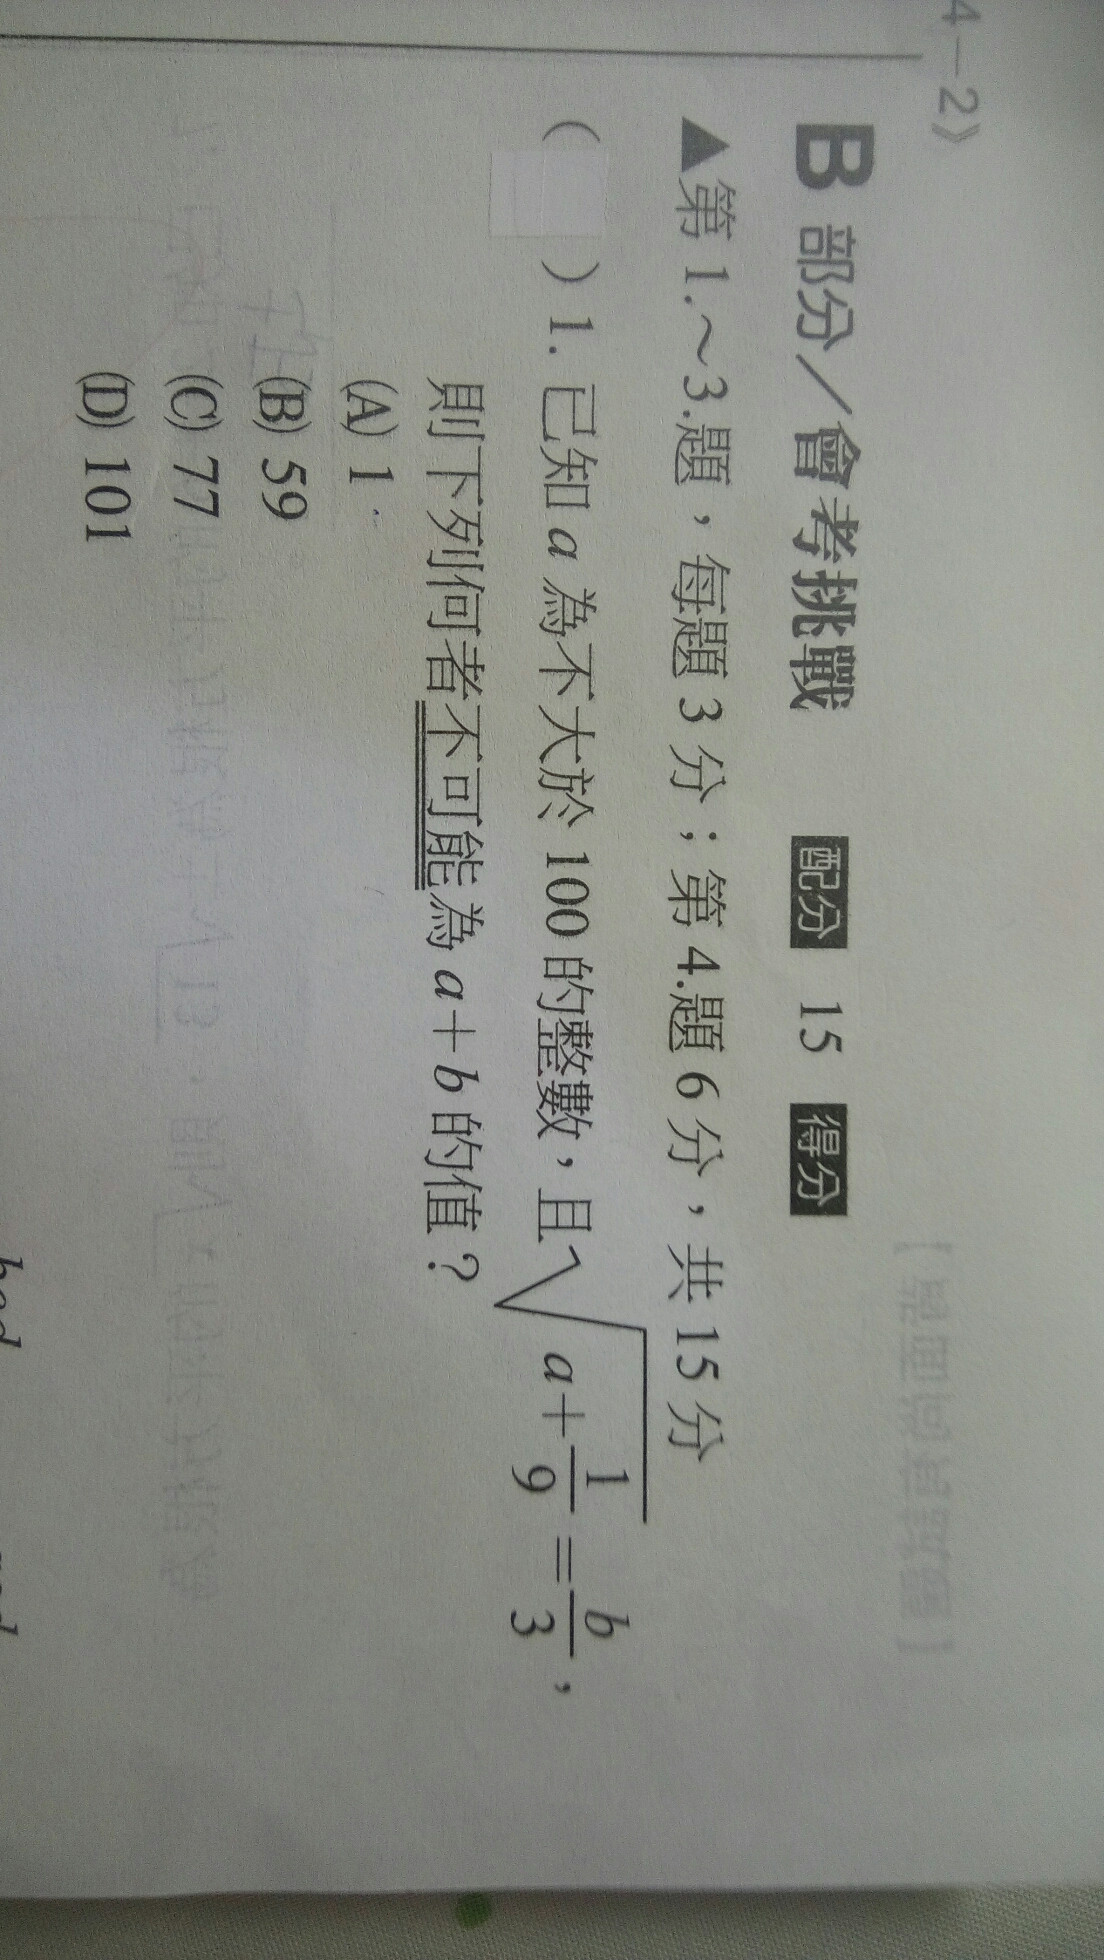 4-2》
B 部分／會考挑戰 配分 15 得分
▲第 1.~3.題，每題 3 分；第 4.題 6 分，共 15 分
( ) 1. 已知 a 為不大於 100 的整數，且√(a+1/9)=b/3，
則下列何者不可能為 a+b 的值？
(A) 1
(B) 59
(C) 77
(D) 101